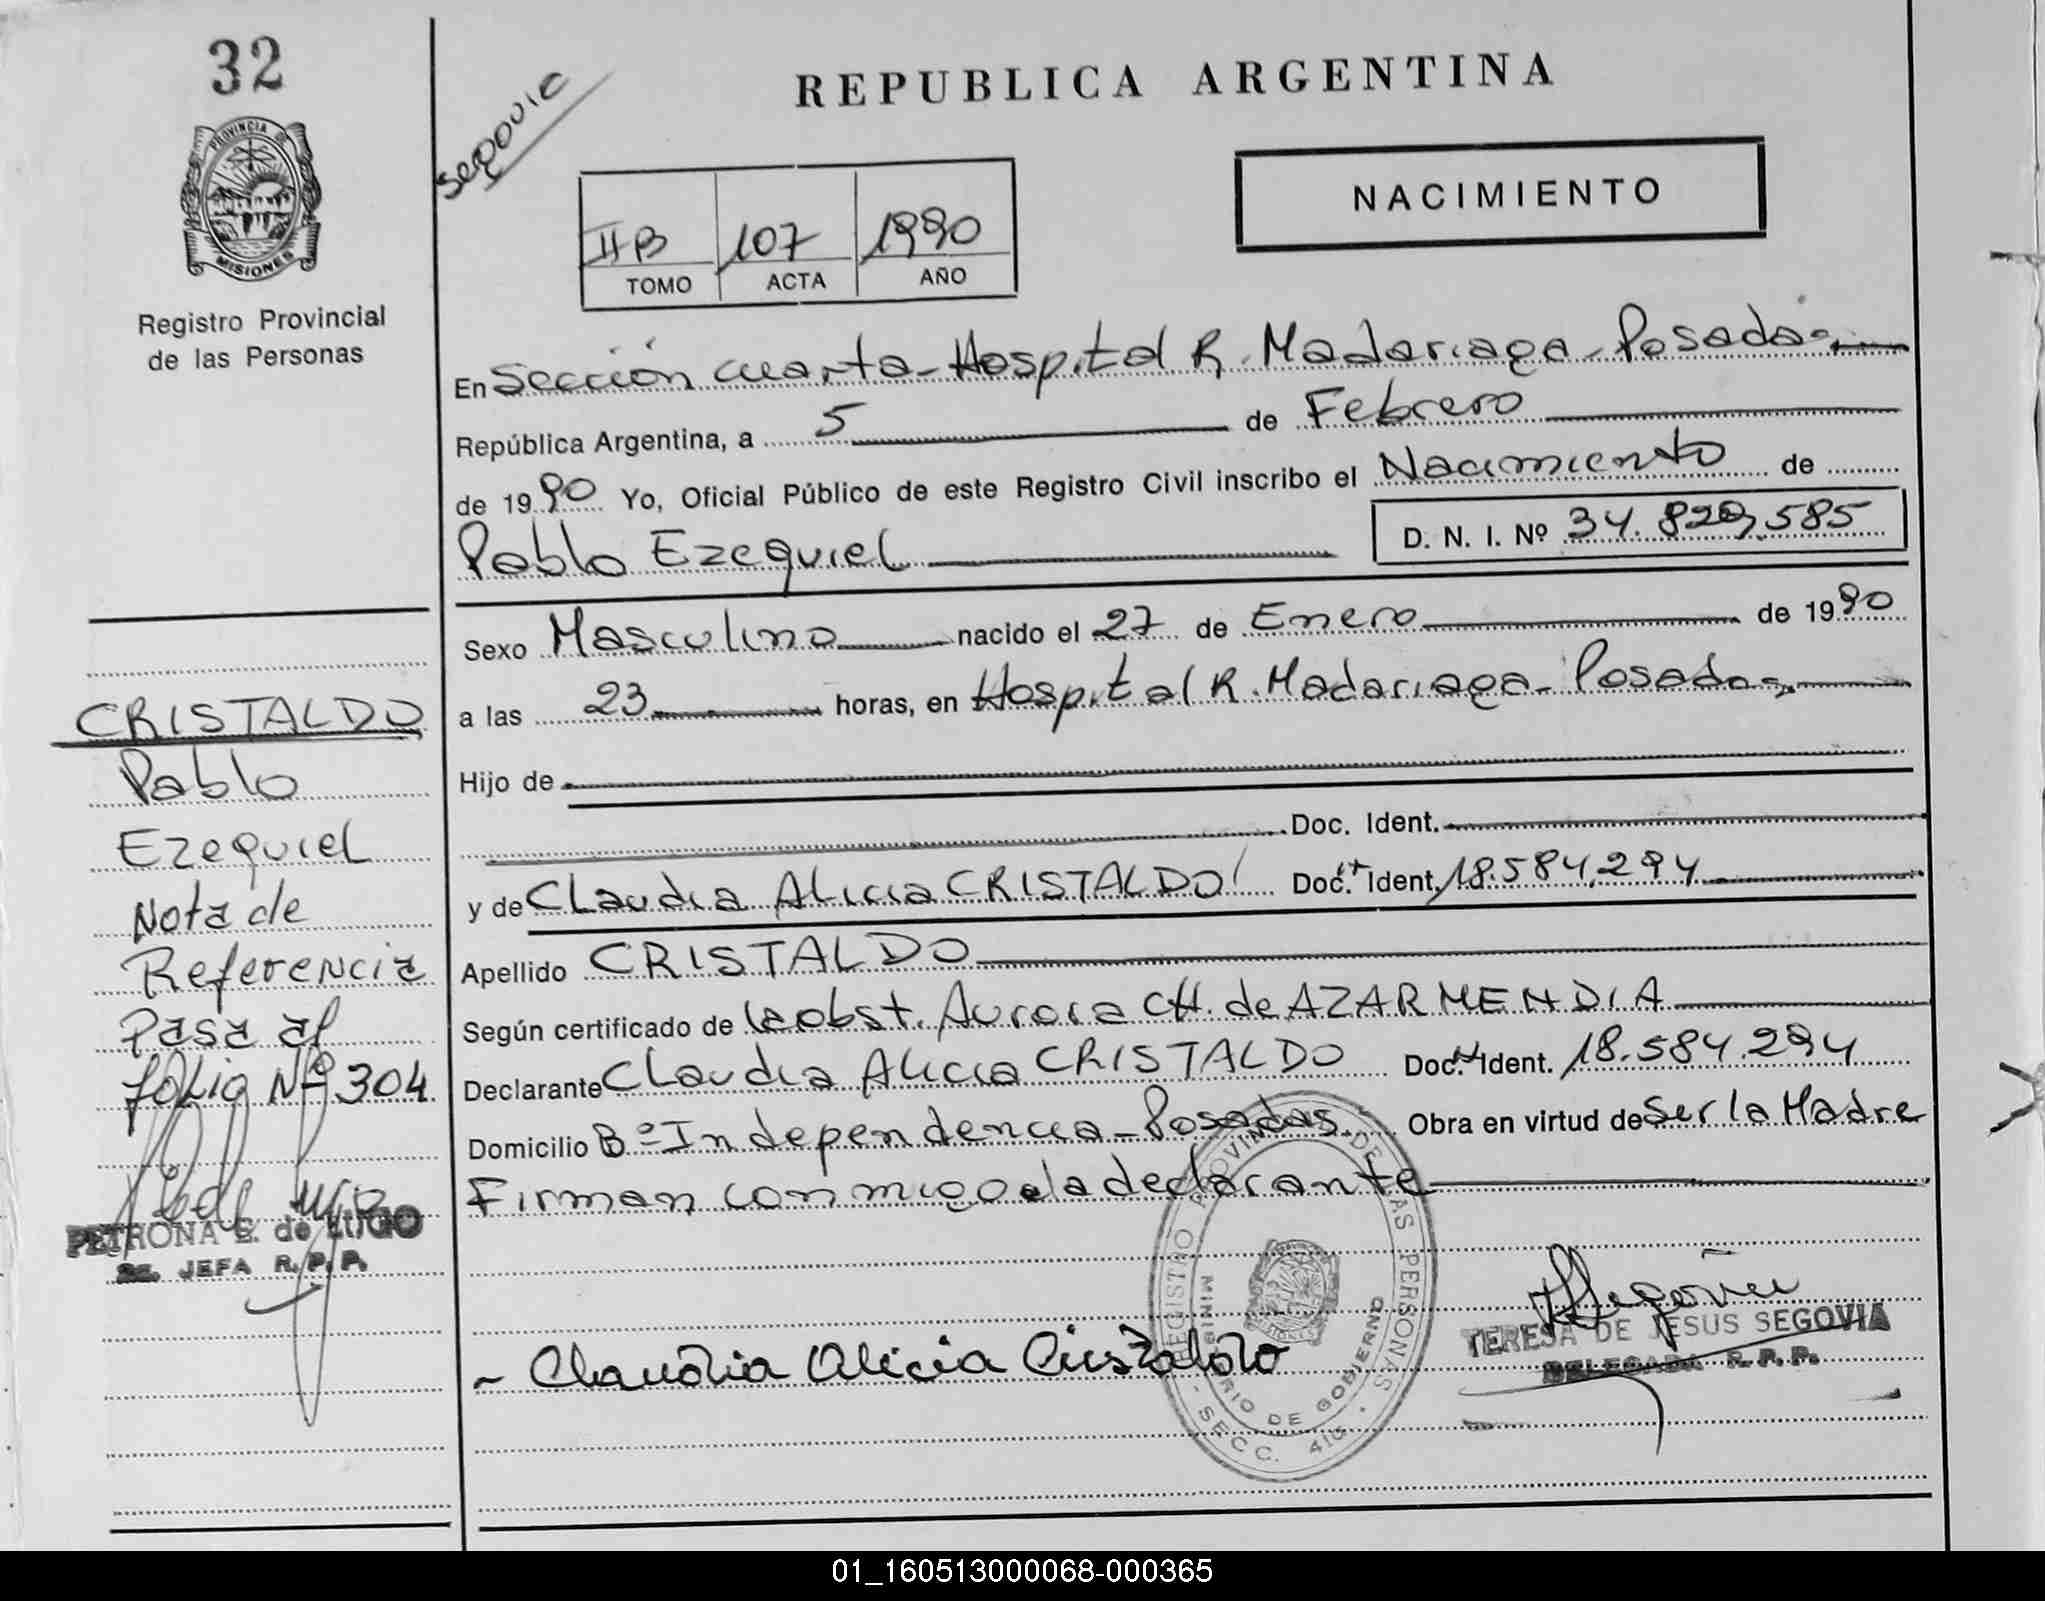 32
PROVINCIA DE
MISIONES
Registro Provincial
de las Personas
Segovia
REPUBLICA ARGENTINA
NACIMIENTO
II B 107 1990
TOMO ACTA AÑO
En Sección cuarta - Hospital R. Madariaga - Posadas
República Argentina, a 5 de Febrero
de 1990 Yo, Oficial Público de este Registro Civil inscribo el Nacimiento de
Pablo Ezequiel D. N. I. Nº 34.829.585
Sexo Masculino nacido el 27 de Enero de 1990
a las 23 horas, en Hospital R. Madariaga - Posadas
Hijo de
Doc. Ident.
y de Claudia Alicia CRISTALDO Doc. Ident. 18.584.294
Apellido CRISTALDO
Según certificado de la obst. Aurora CH. de AZARMENDIA
Declarante Claudia Alicia CRISTALDO Doc. Ident. 18.584.294
Domicilio Bº Independencia - Posadas. Obra en virtud de Ser la Madre
Firman conmigo la declarante
Claudia Alicia Cristaldo
TERESA DE JESUS SEGOVIA
DELEGADA R. P. P.
REGISTRO PROVINCIAL DE LAS PERSONAS
MINISTERIO DE GOBIERNO
SECC. 4ta.
CRISTALDO
Pablo
Ezequiel
Nota de
Referencia
Pasa al
folio Nº 304
PETRONA E. de LUGO
JEFA R. P. P.
01_160513000068-000365